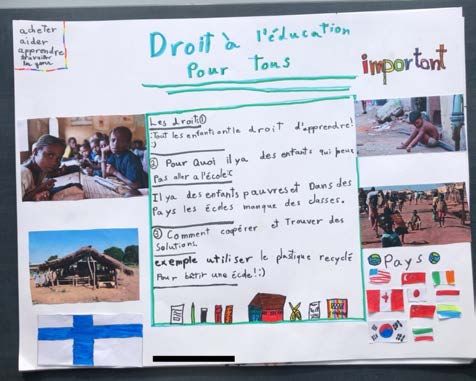 acheter
aider
apprendre
travailler
Droit à l'éducation
Pour tous
important
Les droits①
:Tout les enfants ont le droit d'apprendre!
:)
② Pour Quoi il ya des enfants qui peux
Pas aller a l'école?
Il ya des enfants pauvres et Dans des
Pays les écoles manque des classes.
③ Comment coopérer et Trouver des
solutions.
exemple utiliser le plastique recyclé
Pour bâtir une école!:)
Pays